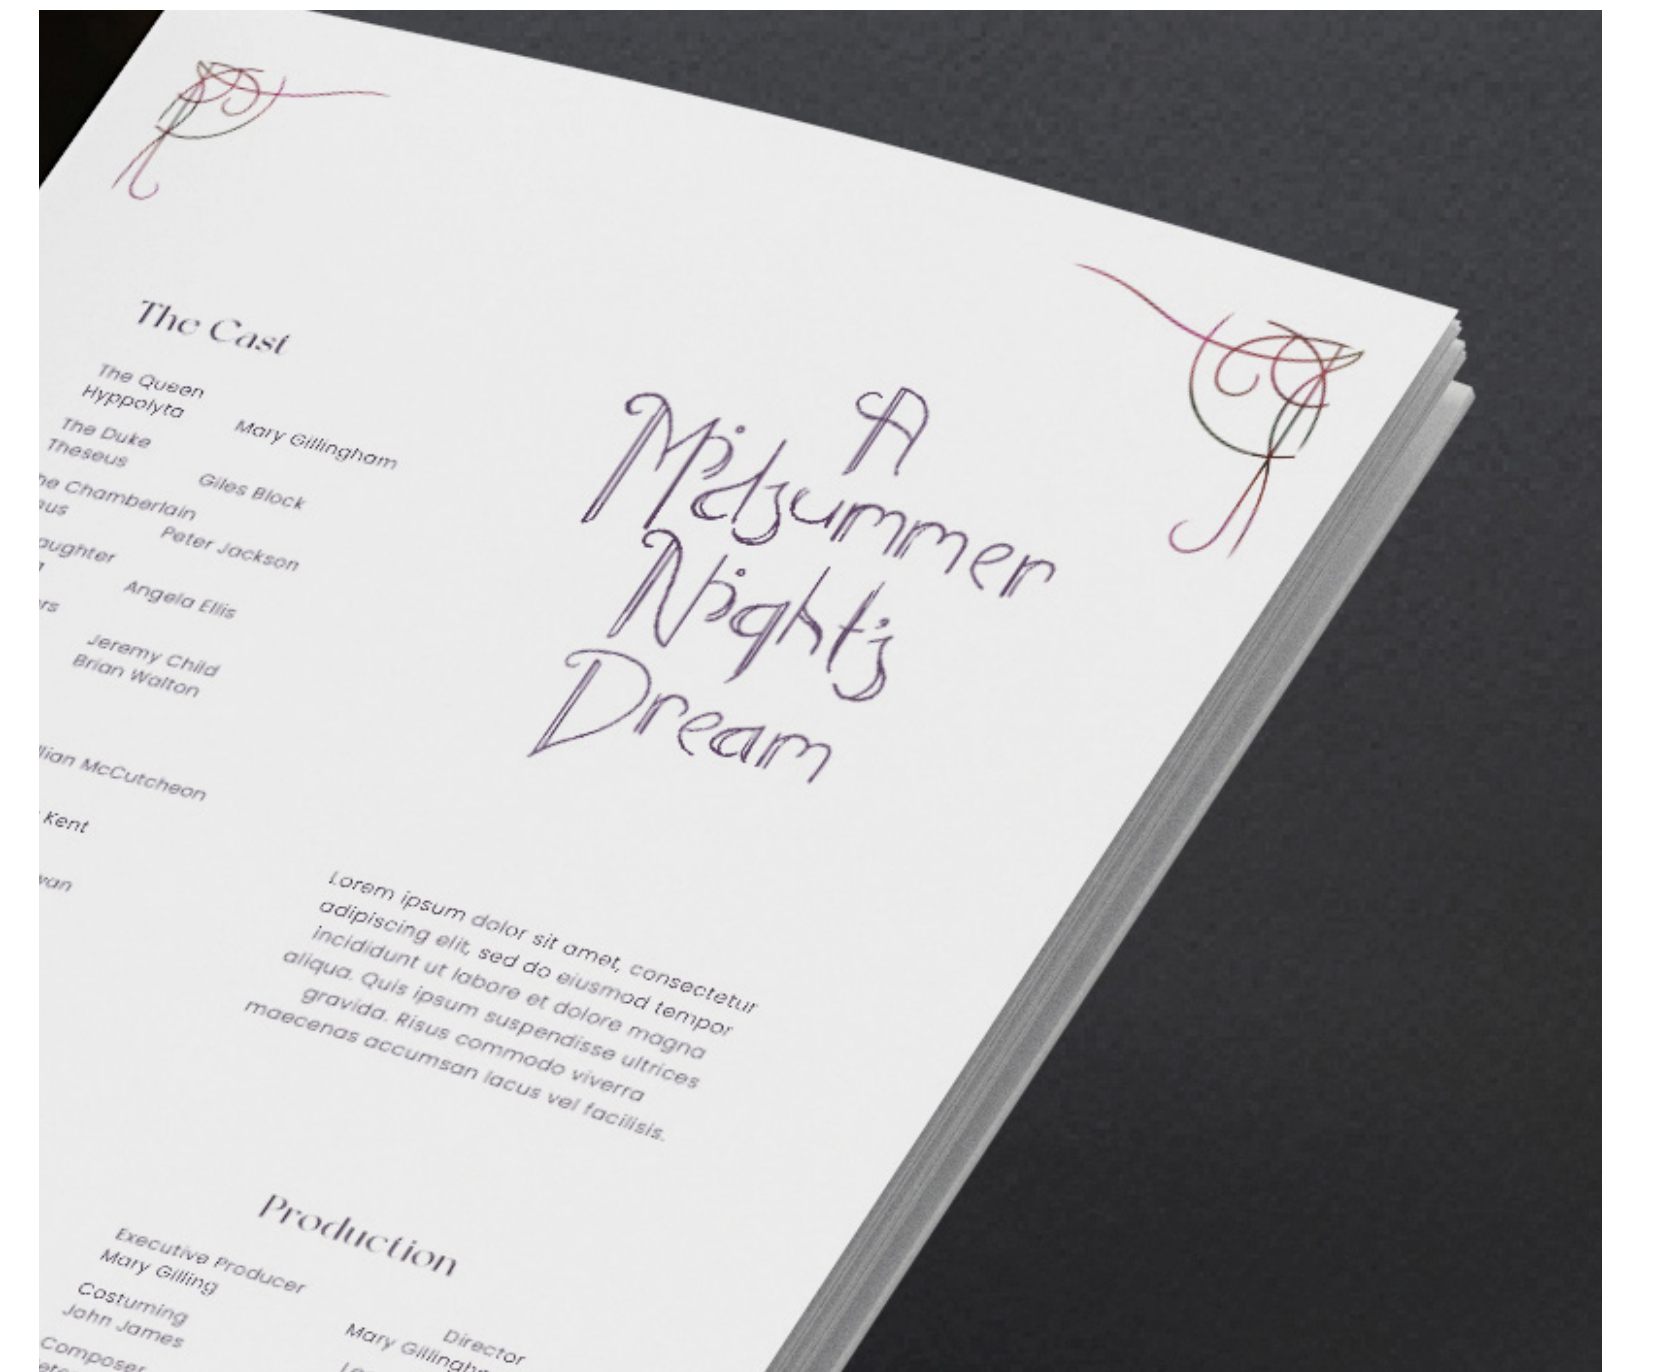 The Cast
The Queen
Hyppolyta
Mary Gillingham
The Duke
Theseus
Giles Block
he Chamberlain
Peter Jackson
aughter
Angela Ellis
Jeremy Child
Brian Walton
lian McCutcheon
Kent
A
Midsummer
Night's
Dream
Lorem ipsum dolor sit amet, consectetur
adipiscing elit, sed do eiusmod tempor
incididunt ut labore et dolore magna
aliqua. Quis ipsum suspendisse ultrices
gravida. Risus commodo viverra
maecenas accumsan lacus vel facilisis.
Production
Executive Producer
Mary Gilling
Costuming
John James
Composer
Director